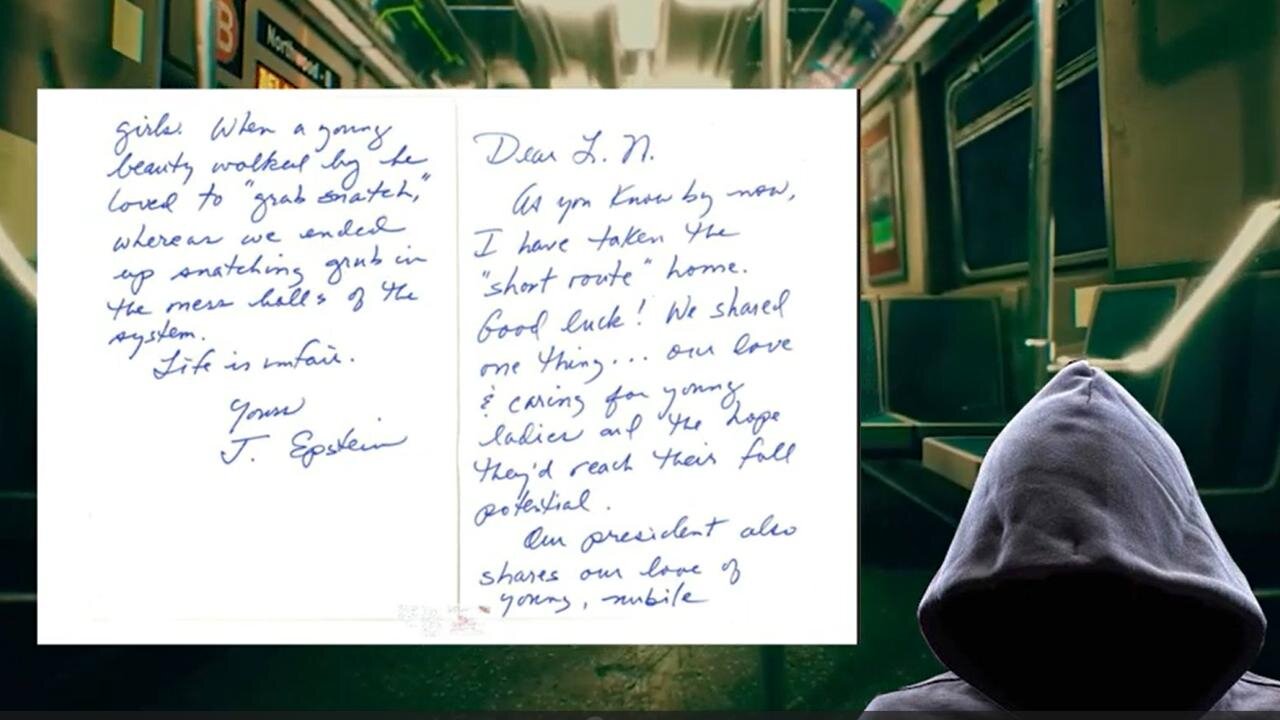 B
Northwood
Dear L. N.
As you know by now,
I have taken the
"short route" home.
Good luck! We shared
one thing... our love
& caring for young
ladies and the hope
they'd reach their full
potential.
Our president also
shares our love of
young, nubile
girls. When a young
beauty walked by he
loved to "grab snatch,"
whereas we ended
up snatching grub in
the mess halls of the
system.
Life is unfair.
Yours
J. Epstein